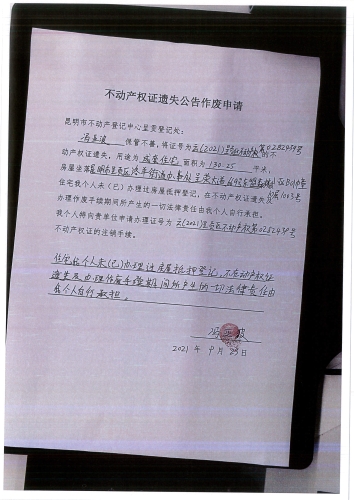 不动产权证遗失公告作废申请
昆明市不动产登记中心呈贡登记处：
冯 波 保管不善，将证号为云(2021)呈贡区不动产权第0282438号的不
动产权证遗失，用途为成套住宅面积为130.25 平米，
房屋坐落昆明市呈贡区 街道办事处
住宅我个人未（已）办理过房屋抵押登记，在不动产权证遗失及
办理作废手续期间所产生的一切法律责任由我个人自行承担。
我个人特向贵单位申请办理证号为云(2021)呈贡区不动产权第0282438号
不动产权证的注销手续。
住宅我个人未(已)办理过房屋抵押登记，不动产权证
遗失及办理作废手续期间所产生的一切法律责任由
我个人自行承担。
冯 波
2021 年 9月23日